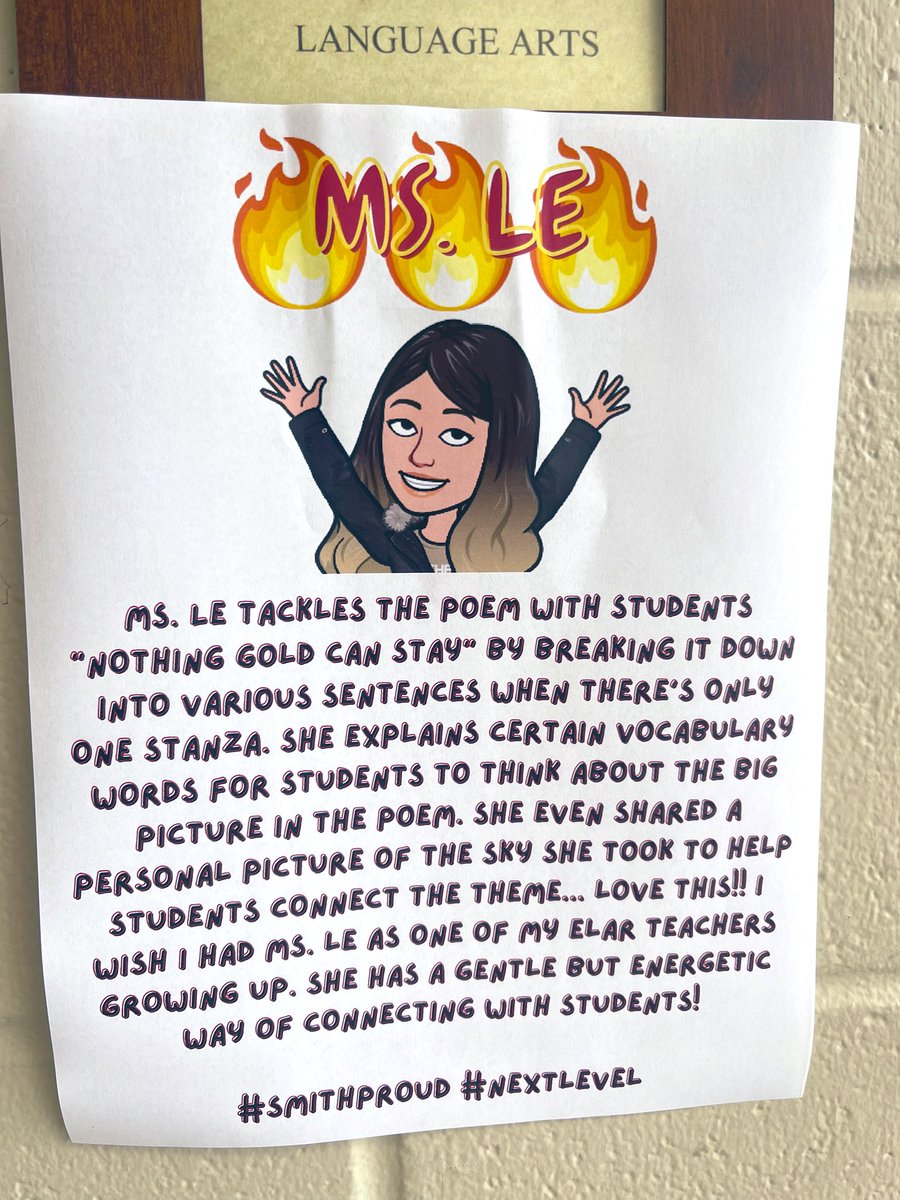 LANGUAGE ARTS
MS. LE
MS. LE TACKLES THE POEM WITH STUDENTS
"NOTHING GOLD CAN STAY" BY BREAKING IT DOWN
INTO VARIOUS SENTENCES WHEN THERE'S ONLY
ONE STANZA. SHE EXPLAINS CERTAIN VOCABULARY
WORDS FOR STUDENTS TO THINK ABOUT THE BIG
PICTURE IN THE POEM. SHE EVEN SHARED A
PERSONAL PICTURE OF THE SKY SHE TOOK TO HELP
STUDENTS CONNECT THE THEME... LOVE THIS!! I
WISH I HAD MS. LE AS ONE OF MY ELAR TEACHERS
GROWING UP. SHE HAS A GENTLE BUT ENERGETIC
WAY OF CONNECTING WITH STUDENTS!
#SMITHPROUD #NEXTLEVEL